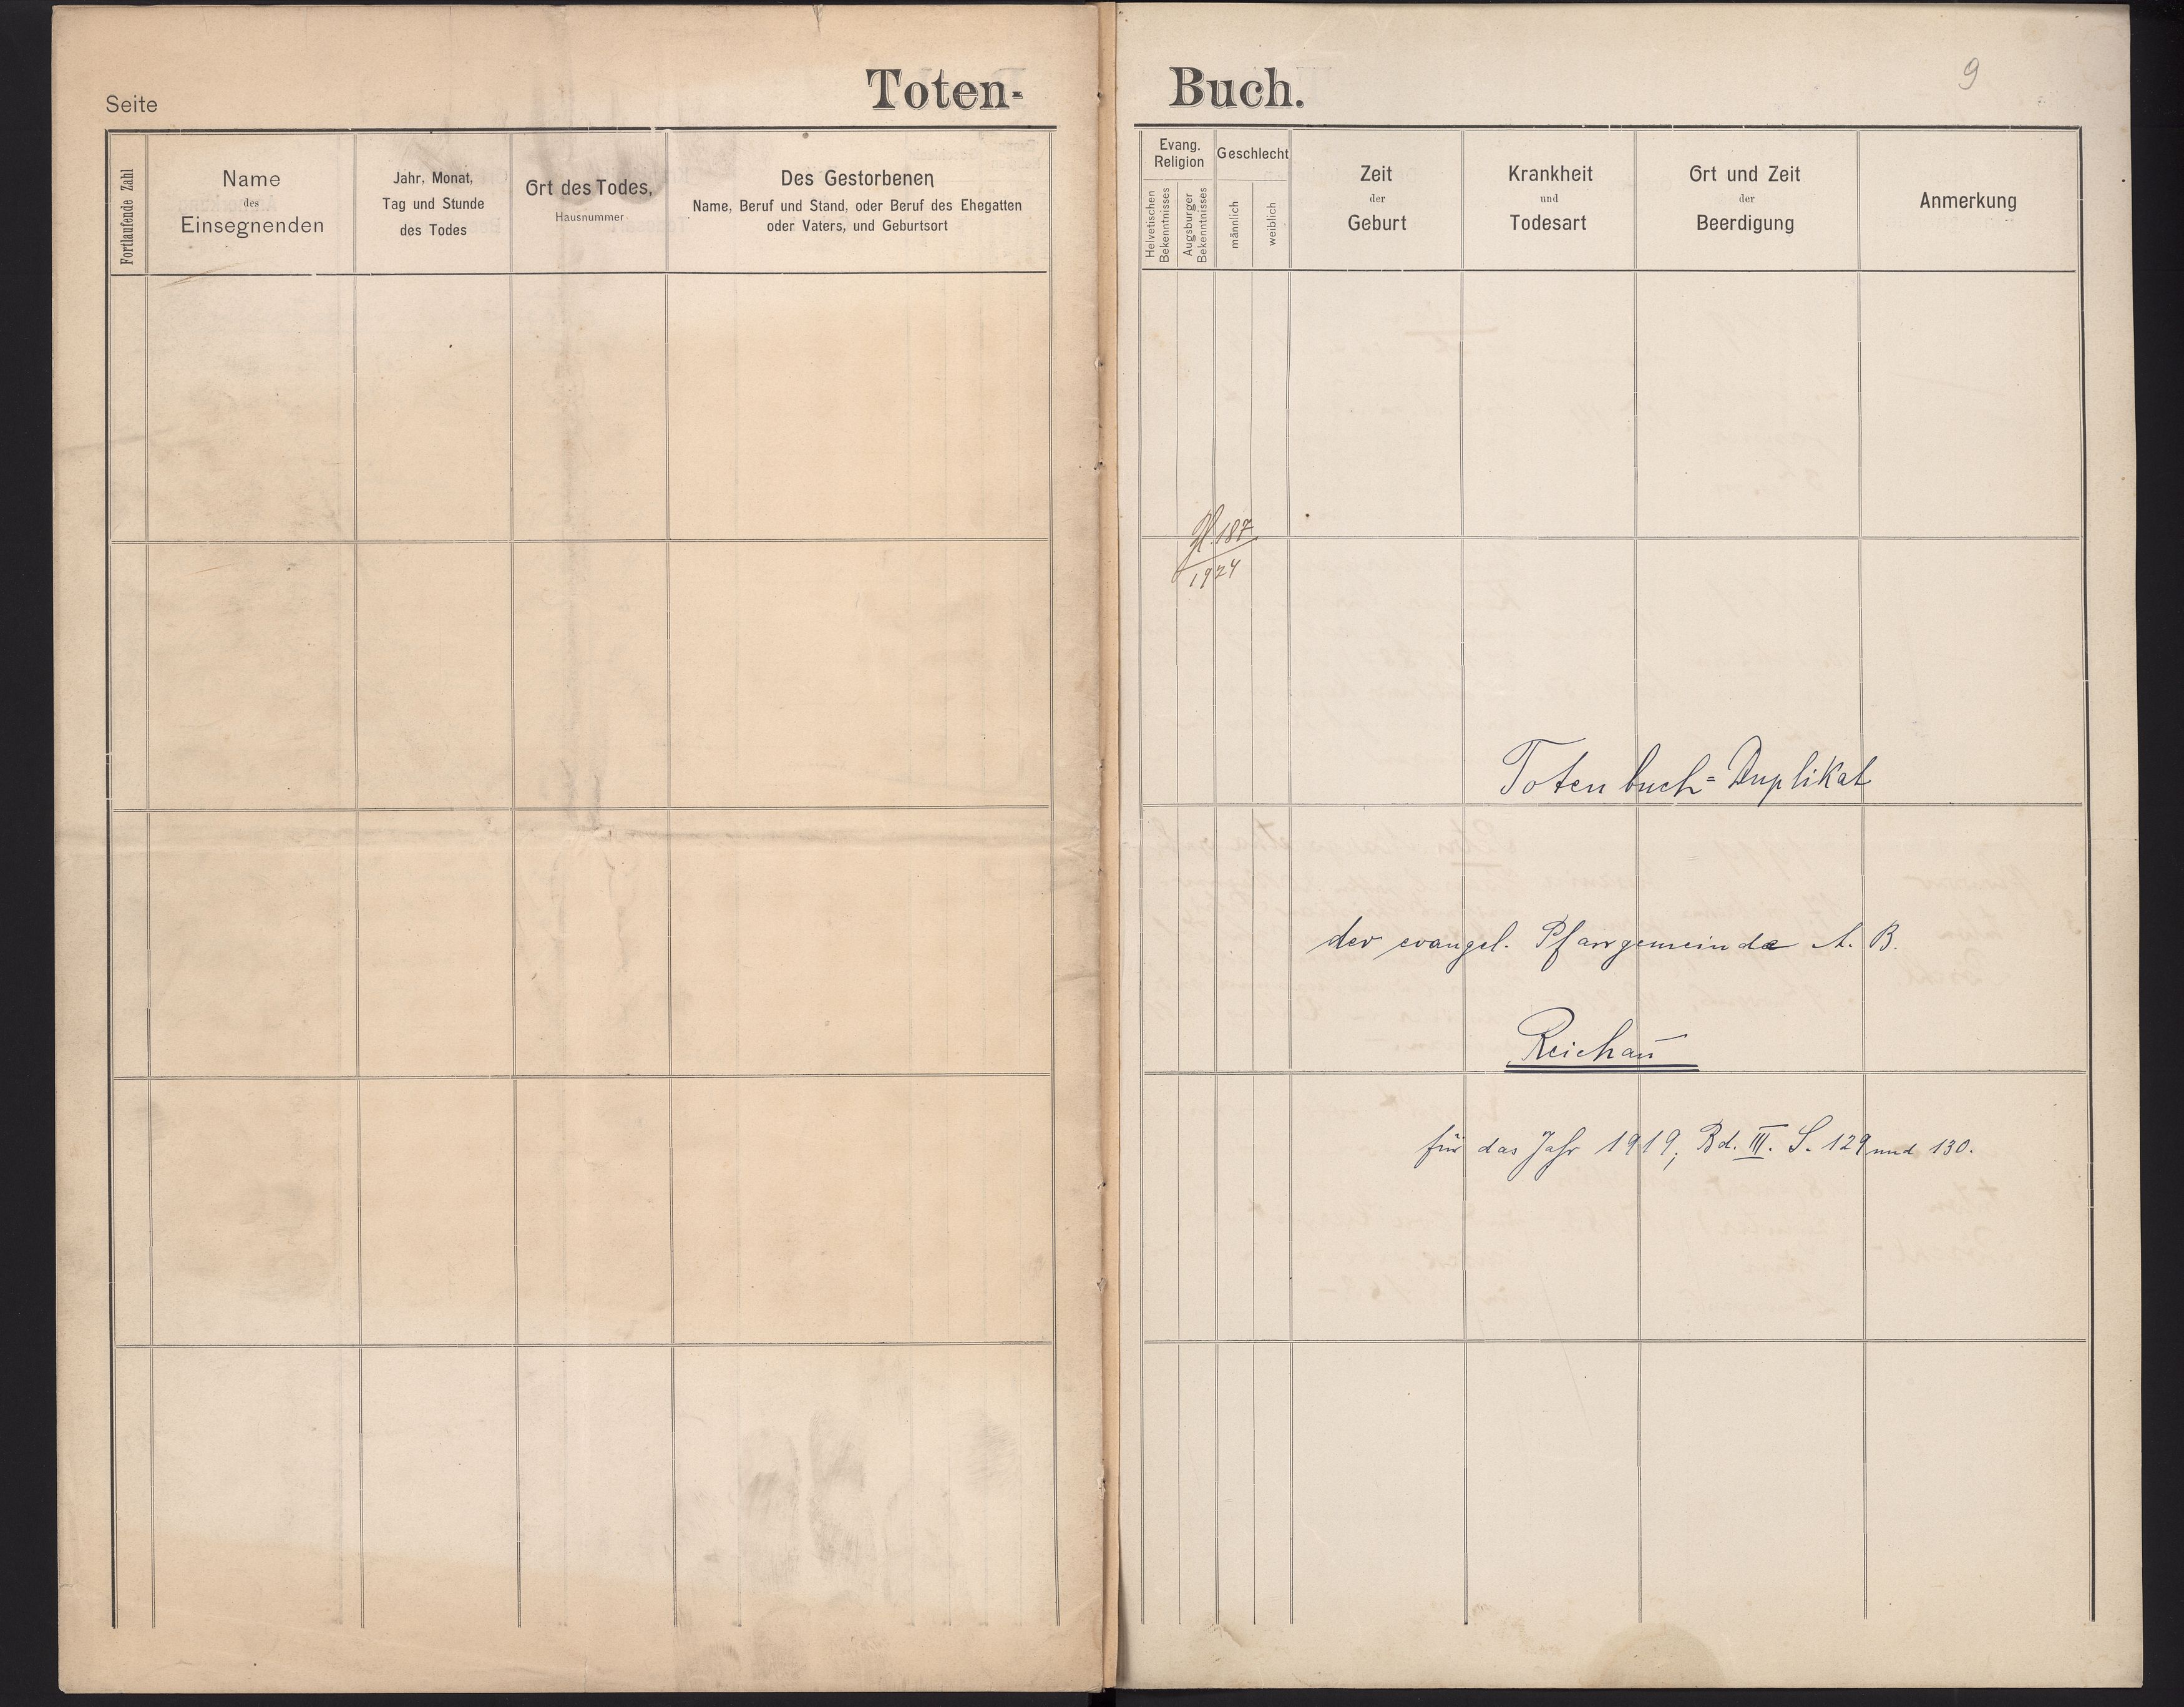 Seite
Toten-
Fortlaufende Zahl
Name
des
Einsegnenden
Jahr, Monat,
Tag und Stunde
des Todes
Ort des Todes,
Hausnummer
Des Gestorbenen
Name, Beruf und Stand, oder Beruf des Ehegatten
oder Vaters, und Geburtsort
Buch.
9
Evang.
Religion
Helvetischen
Bekenntnisses
Augsburger
Bekenntnisses
Geschlecht
männlich
weiblich
Zeit
der
Geburt
Krankheit
und
Todesart
Ort und Zeit
der
Beerdigung
Anmerkung
187
1924
Totenbuch=Duplikat
der evangel. Pfarrgemeinde A. B.
Reichau
für das Jahr 1919; Bd. III. S. 129 und 130.